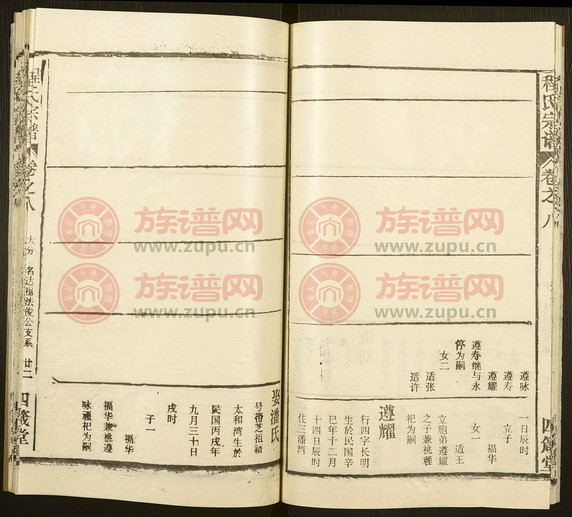 程氏宗谱
卷之八
四箴堂
遵咏
遵寿
遵耀
遵寿继与永
停为嗣
女二
适张
适许
一日辰时
立子
福华
女一
适王
立胞弟遵耀
之子兼祧
祀为嗣
遵耀
行四字长明
生於民国辛
巳年十二月
十四日辰时
住三潘湾
娶潘氏
号增芝祖籍
太和湾生於
民国丙戌年
九月三十日
戌时
子一
福华
福华兼祧遵
咏禋祀为嗣
程氏宗谱
卷之八
名达祖法俊公支系
廿二
四箴堂
族谱网
www.zupu.cn
族谱网
www.zupu.cn
族谱网
www.zupu.cn
族谱网
www.zupu.cn